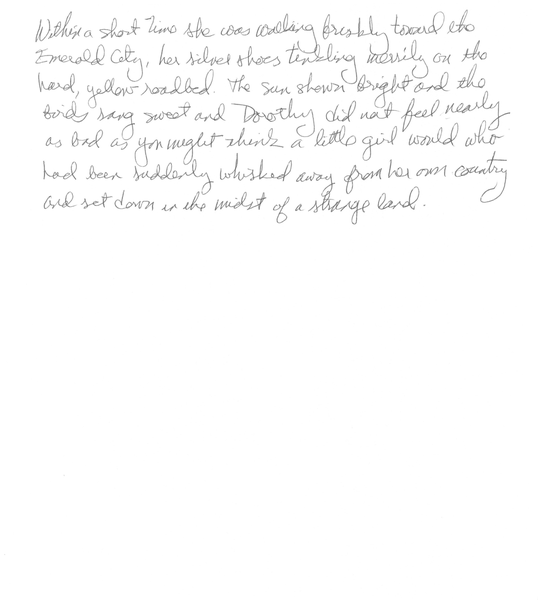 Within a short Time she was walking briskly toward the
Emerald City, her silver shoes tinkling merrily on the
hard, yellow roadbed. The sun shown bright and the
birds sang sweet and Dorothy did not feel nearly
as bad as you might think a little girl would who
had been suddenly whisked away from her own country
and set down in the midst of a strange land.